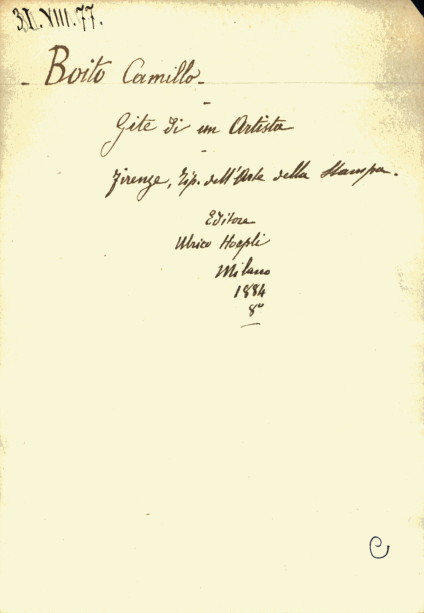 31.VIII.77.
Boito Camillo
Gite di un Artista
Firenze, Tip. dell'Arte della Stampa.
Editore
Ulrico Hoepli
Milano
1884
8º
C